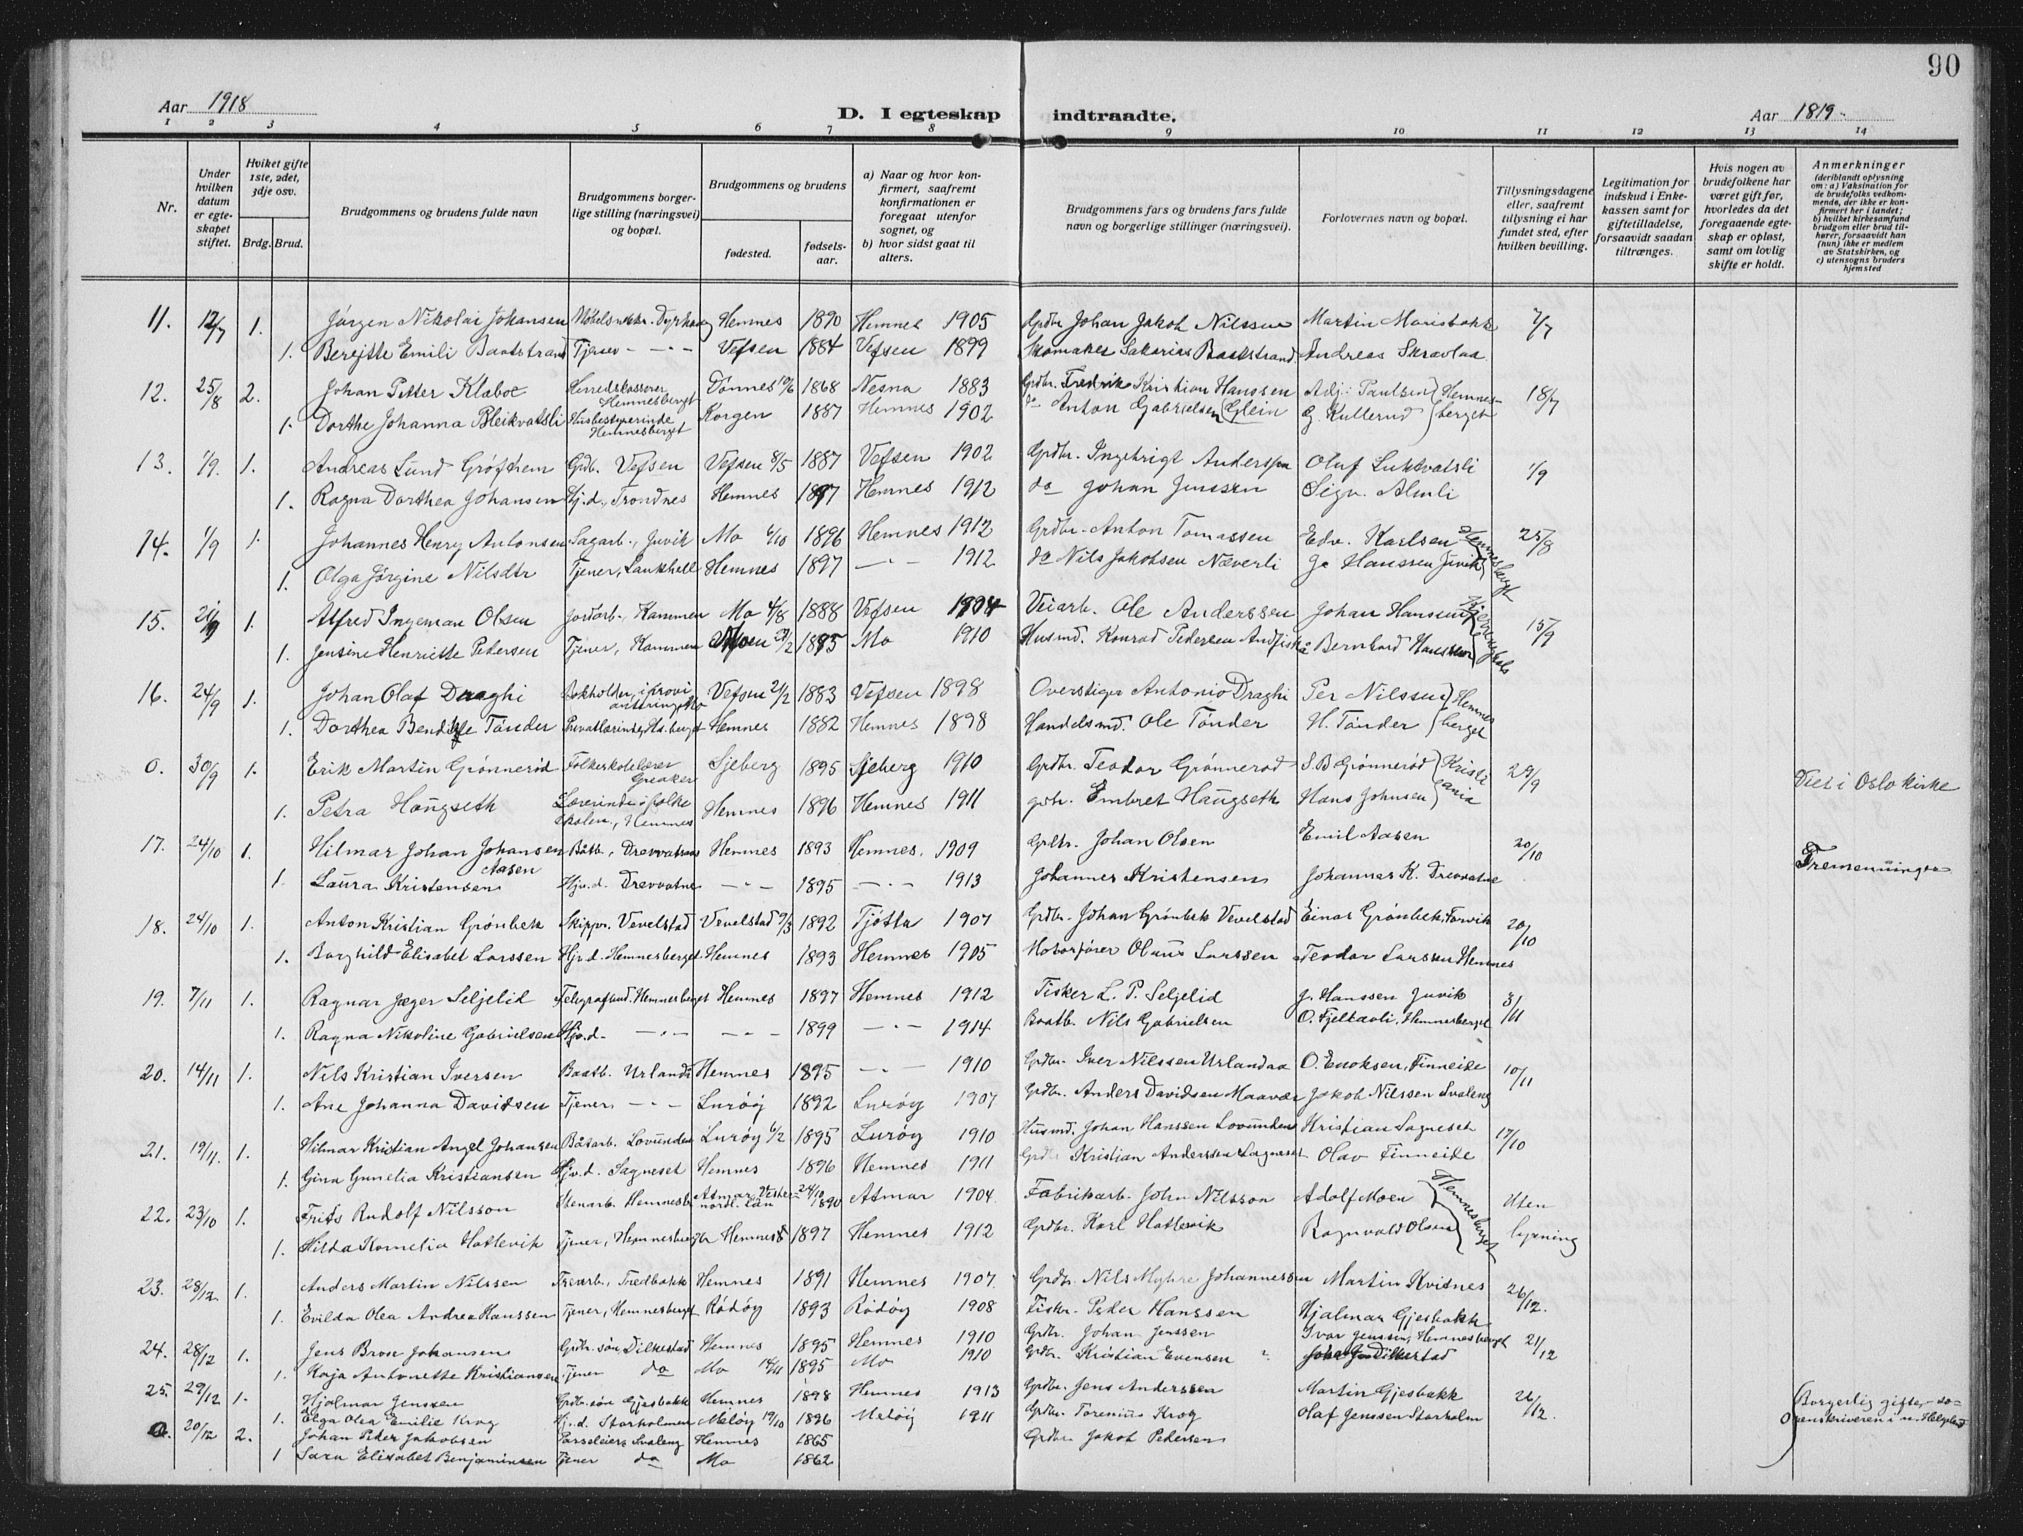 90
Aar 1918 D. I egteskap indtraadte. Aar 1819
1 2 3 4 5 6 7 8 9 10 11 12 13 14
Nr.
Under hvilken datum er egteskapet stiftet.
Hvilket gifte 1ste, 2det, 3dje osv.
Brdg. Brud.
Brudgommens og brudens fulde navn
Brudgommens borgerlige stilling (næringsvei) og bopæl.
Brudgommens og brudens
fødested.
fødselsaar.
a) Naar og hvor konfirmert, saafremt konfirmationen er foregaat utenfor sognet, og
b) hvor sidst gaat til alters.
Brudgommens fars og brudens fars fulde navn og borgerlige stillinger (næringsvei).
Forlovernes navn og bopæl.
Tillysningsdagene eller, saafremt tillysning ei har fundet sted, efter hvilken bevilling.
Legitimation for indskud i Enkekassen samt for giftetilladelse, forsaavidt saadan tiltrænges.
Hvis nogen av brudefolkene har været gift før, hvorledes da det foregaaende egteskap er opløst, samt om lovlig skifte er holdt.
Anmerkninger (deriblandt oplysning om: a) Vaksination for de brudefolks vedkommende, der ikke er konfirmert her i landet; b) hvilket kirkesamfund brudgom eller brud tilhører, forsaavidt han (hun) ikke er medlem av Statskirken, og c) utensogns bruders hjemsted
11. 12/7 1. Jørgen Nikolai Johansen Hemnes 1890 Hemnes 1905 Grdbr. Johan Jakob Nilssen Martin Marisbakk 7/7
1. Berejtte Emili Baatstrand Tjener -"- Vefsen 1884 Vefsen 1899 Skomaker Sakarias Baatstrand Andreas Skravlaa
12. 25/8 2. Johan Petter Klæboe Herredskasserer Hemnesberget Dønnes 19/6 1868 Nesna 1883 Grdbr. Fredrik Kristian Hanssen Adj: Paulsen Hemnesberget 18/7
1. Dorthe Johanna Bleikvatsli Husbestyrerinde Hemnesberget Korgen 1887 Hemnes 1902 do Anton Gabrielsen Glein G Kullerud
13. 1/9. 1. Andreas Lund Grøftrem Grdb. Vefsen Vefsen 8/5 1887 Vefsen 1902 Grdbr. Ingebrigt Anderssen Oluf Lukkvatsli 1/9
1. Ragna Dorthea Johansen Hj.d., Trondnes Hemnes 1897 Hemnes 1912 do Johan Jenssen Sigv. Almli
14. 1/9 1. Johannes Henry Antonsen Sagarb., Juvik Mo 6/10 1896 Hemnes 1912 Grdbr. Anton Tomassen Edv. Karlsen Hemnesberget 25/8
1. Olga Jørgine Nilsdtr Tjener, Laukhell Hemnes 1897 -"- 1912 do Nils Jakobsen Næverli G. Hanssen Juvik
15. 21/9 1. Alfred Ingeman Olsen Jordarb., Kammen Mo 4/8 1888 Vefsen 1904 Veiarb. Ole Anderssen Johan Hanssen 15/9
1. Jensine Henriette Petersen Tjener, Kammen 1895 Mo 1910 Husmd. Konrad Pedersen Andfiskå Bernhard Hanssen
16. 24/9 1. Johan Olaf Draghi Bokholder, i provianteringst Mo Vefsen 2/2 1883 Vefsen 1898 Overstiger Antonio Draghi Per Nilssen Hemnesberget
1. Dorthea Bendikte Tønder Privatlærinde, Hs. berget Hemnes 1882 Hemnes 1898 Handelsmd. Ole Tønder H. Tønder
0. 30/9 1. Erik Martin Grønnerød Folkeskolelærer Greaker Skjeberg 1895 Skjeberg 1910 Grdbr. Teodor Grønnerød S.B Grønnerød Kristiania 29/9 Viet i Oslo kirke
1. Petra Haugseth Lærerinde i folkeskolen, Hemnes Hemnes 1896 Hemnes 1911 grbr. Embret Haugseth Hans Johnsen
17. 24/10 1. Hilmar Johan Johansen Aasen Båtb., Drevvatnes Hemnes 1893 Hemnes. 1909 Grdbr. Johan Olsen Emil Aasen 20/10 Tremenninger
1. Laura Kristensen Hjv.d. Drevvatne -"- 1895 -"- 1913 Johannes Kristensen Johannes K. Drevvatne
18. 24/10 1. Anton Kristian Grønbek Skippr. Vevelstad Vevelstad 9/3 1892 Tjøtta 1907 Grdbr. Johan Grønbek Vevelstad Einar Grønbek, Forvik 20/10
1. Borghild Elisabet Larssen Hjv.d. Hemnesberget Hemnes 1893 Hemnes 1905 Motorfører Olaus Larssen Teodor Larssen Hemnes
19. 7/11 1. Ragnar Jæger Seljelid Telegrafand. Hemnesberget Hemnes 1897 Hemnes 1912 Fisker L. P. Seljelid J. Hanssen Juvik 3/11
1. Ragna Nikoline Gabrielsen Hjv.d. -"- -"- 1899 -"- 1914 Baatb. Nils Gabrielsen O. Fjelltavli, Hemnesberget
20. 14/11 1. Nils Kristian Iversen Baatb. Urlandå Hemnes 1895 -"- 1910 Grdbr. Iver Nilssen Urlandaa O. Enoksen, Finneide 10/11
1. Ane Johanna Davidsen Tjener -"- Lurøy 1892 Lurøy 1907 Grdbr. Anders Davidsen Maavær Jakob Nilssen Svaleng
21. 19/11. 1. Hilmar Kristian Angel Johansen Båtarb. Lovunden Lurøy 6/2 1895 Lurøy 1910 Husmd. Johan Hanssen Lovunden Kristian Sagneset 17/10
1. Gina Gunelia Kristiansen Hjv.d. Sagneset Hemnes 1896 Hemnes 1911 Grdbr Kristian Anderssen Sagneset Olav Finneide
22. 23/10 1. Frits Rudolf Nilsson Stenarb. Hemnesb Atmar, Vesternordl. Län 24/10 1890 Atmar 1904. Fabrikarb. John Nilsson Adolf Moen Hemnesberget Uten lysning
1. Hilda Kornelia Hattevik Tjener, Hemnesberget Hemnes 1897 Hemnes 1912 Grdbr. Karl Hattevik Ragnvald Olsen
23. 28/12. 1. Anders Martin Nilssen Trearb., Tredbakk Hemnes 1891 Hemnes 1907. Grdbr. Nils Myhre Johannessen Martin Kvidnes 26/12.
1. Evilda Olea Andrea Hanssen Tjener, Hemnesberget Rødøy 1893 Rødøy 1908 Fiskr. Peder Hanssen Hjalmar Gjesbakk
24. 28/12 1. Jens Brose Johansen Grdbr. søn, Dilkestad Hemnes 1895 Hemnes 1910 Grdbr. Johan Jenssen Ivar Jenssen, Hemnesberget 21/12
1 Kaja Antonette Kristiansen Tjener do Mo 1895 Mo 1910 Grdbr. Kristian Evensen Dilkestad
25. 29/12 1. Hjalmar Jenssen Grdbr. søn Gjesbakk Hemnes 1898 Hemnes 1913 Grdbr. Jens Anderssen Martin Gjesbakk 26/12.
1. Elga Olea Emilie Krog Hj.d. Storholmen Meløy 19/10 1896 Meløy 1911 Grdbr. Torenius Krog Olaf Jenssen Storholm
0. 20/12 2. Johan Peter Jakobsen Parseleier Svaleng Hemnes 1865 Grdbr. Jakob Pedersen Borgerlig gifte, sorenskriveren i n. Helgeland
1 Sara Elisabet Benjaminsen Tjener do Mo 1862